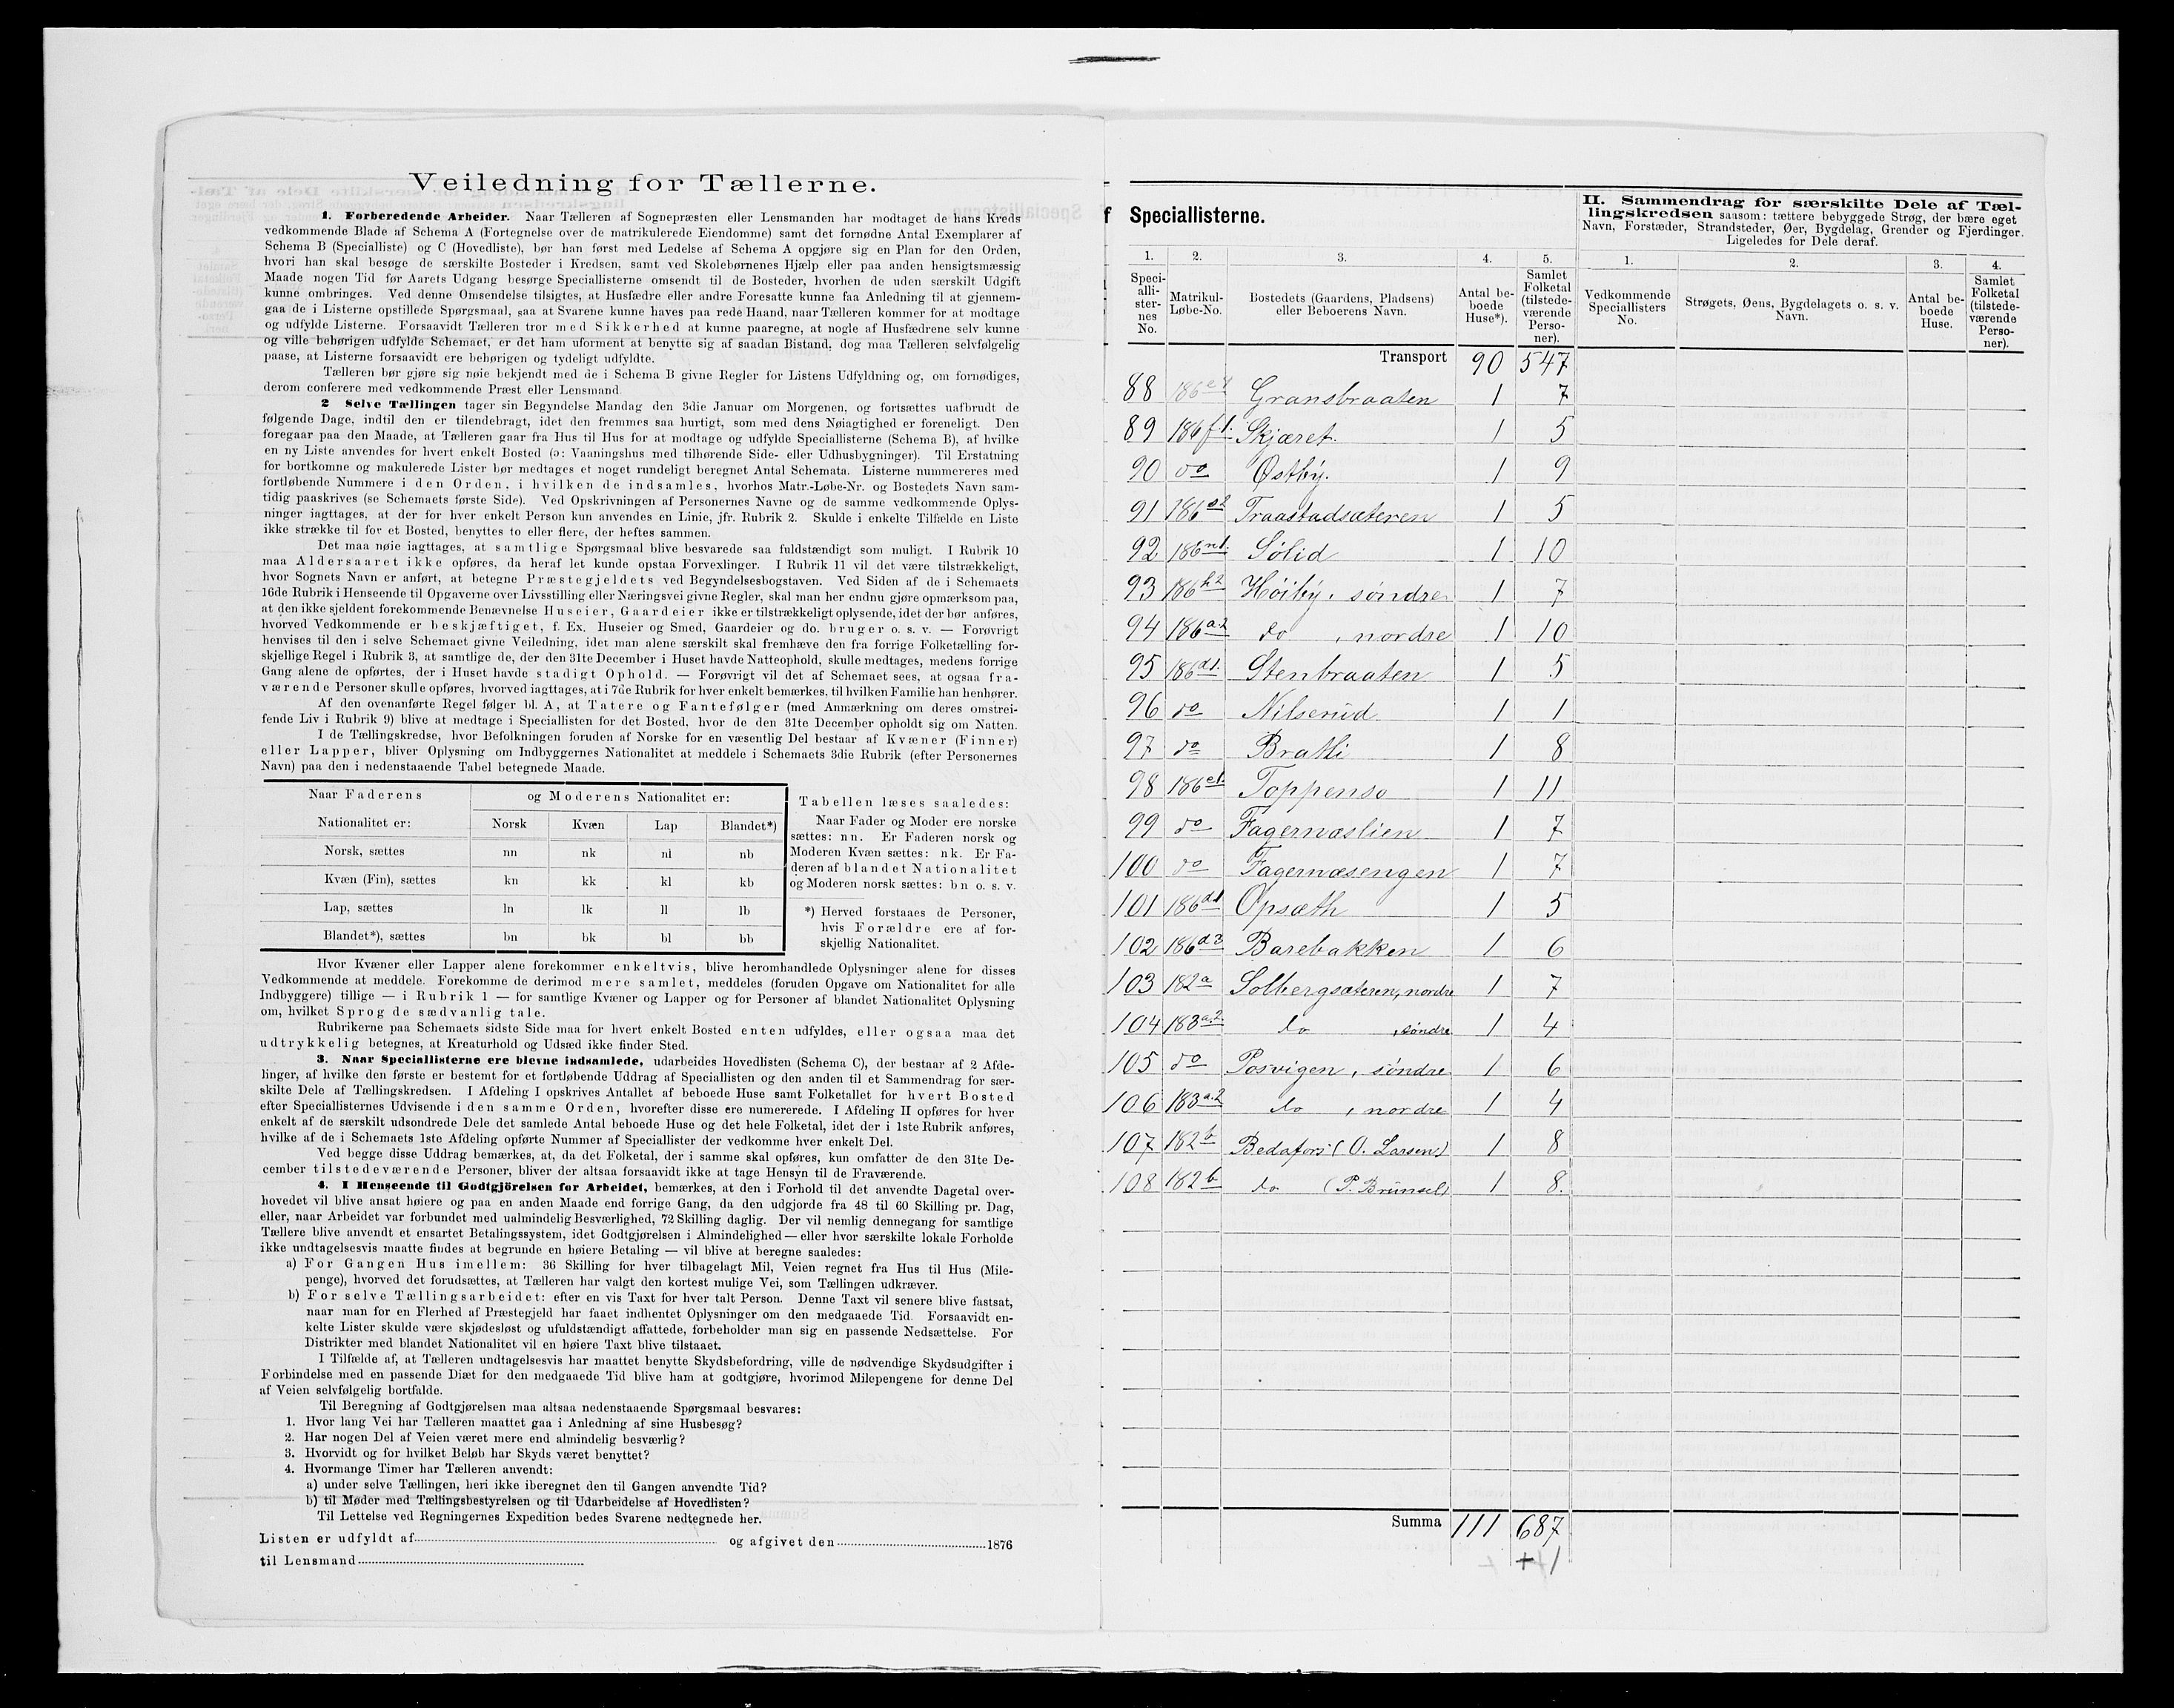 Veiledning for Tællerne.
1. Forberedende Arbeider. Naar Tælleren af Sognepræsten eller Lensmanden har modtaget de hans Kreds
vedkommende Blade af Schema A (Fortegnelse over de matrikulerede Eiendomme) samt det fornødne Antal Exemplarer af
Schema B (Specialliste) og C (Hovedliste), bør han først med Ledelse af Schema A opgjøre sig en Plan for den Orden,
hvori han skal besøge de særskilte Bosteder i Kredsen, samt ved Skolebørnenes Hjælp eller paa anden hensigtsmæssig
Maade nogen Tid før Aarets Udgang besørge Speciallisterne omsendt til de Bosteder, hvorhen de uden særskilt Udgift
kunne ombringes. Ved denne Omsendelse tilsigtes, at Husfædre eller andre Foresatte kunne faa Anledning til at gjennem-
gaa de i Listerne opstillede Spørgsmaal, saa at Svarene kunne haves paa rede Haand, naar Tælleren kommer for at modtage
og udfylde Listerne. Forsaavidt Tælleren tror med Sikkerhed at kunne paaregne, at nogle af Husfædrene selv kunne
og ville behørigen udfylde Schemaet, er det ham uforment at benytte sig af saadan Bistand, dog maa Tælleren selvfølgelig
paase, at Listerne forsaavidt ere behørigen og tydeligt udfyldte.
Tælleren bør gjøre sig nøie bekjendt med de i Schema B givne Regler for Listens Udfyldning og, om fornødiges,
derom conferere med vedkommende Præst eller Lensmand.
2 Selve Tællingen tager sin Begyndelse Mandag den 3die Januar om Morgenen, og fortsættes uafbrudt de
følgende Dage, indtil den er tilendebragt, idet den fremmes saa hurtigt, som med dens Nøiagtighed er foreneligt. Den
foregaar paa den Maade, at Tælleren gaar fra Hus til Hus for at modtage og udfylde Speciallisterne (Schema B), af hvilke
en ny Liste anvendes for hvert enkelt Bosted (ɔ: Vaaningshus med tilhørende Side- eller Udhusbygninger). Til Erstatning
for bortkomne og makulerede Lister bør medtages et noget rundeligt beregnet Antal Schemata. Listerne nummereres med
fortløbende Nummere i den Orden, i hvilken de indsamles, hvorhos Matr.-Løbe-Nr. og Bostedets Navn sam-
tidig paaskrives (se Schemaets første Side). Ved Opskrivningen af Personernes Navne og de samme vedkommende Oplys-
ninger iagttages, at der for hver enkelt Person kun anvendes en Linie, jfr. Rubrik 2. Skulde i enkelte Tilfælde en Liste
ikke strække til for et Bosted, benyttes to eller flere, der heftes sammen.
Det maa nøie iagttages, at samtlige Spørgsmaal blive besvarede saa fuldstændigt som muligt. I Rubrik 10
maa Aldersaaret ikke opføres, da heraf let kunde opstaa Forvexlinger. I Rubrik 11 vil det være tilstrækkeligt,
hvor Sognets Navn er anført, at betegne Præstegjeldets ved Begyndelsesbogstaven. Ved Siden af de i Schemaets
16de Rubrik i Henseende til Opgaverne over Livsstilling eller Næringsvei givne Regler, skal man her endnu gjøre opmærksom paa,
at den ikke sjeldent forekommende Benævnelse Huseier, Gaardeier ikke er tilstrækkeligt oplysende, idet der bør anføres,
hvorved Vedkommende er beskjæftiget, f. Ex. Huseier og Smed, Gaardeier og do. bruger o. s. v. — Forøvrigt
henvises til den i selve Schemaet givne Veiledning, idet man alene særskilt skal fremhæve den fra forrige Folketælling for-
skjellige Regel i Rubrik 3, at samtlige de, der den 31te December i Huset havde Natteophold, skulle medtages, medens forrige
Gang alene de opførtes, der i Huset havde stadigt Ophold. — Forøvrigt vil det af Schemaet sees, at ogsaa fra-
værende Personer skulle opføres, hvorved iagttages, at i 7de Rubrik for hver enkelt bemærkes, til hvilken Familie han henhører.
Af den ovenanførte Regel følger bl. A, at Tatere og Fantefølger (med Anmærkning om deres omstrei-
fende Liv i Rubrik 9) blive at medtage i Speciallisten for det Bosted, hvor de den 31te December opholdt sig om Natten.
I de Tællingskredse, hvor Befolkningen foruden af Norske for en væsentlig Del bestaar af Kvæner (Finner)
eller Lapper, bliver Oplysning om Indbyggernes Nationalitet at meddele i Schemaets 3die Rubrik (efter Personernes
Navn) paa den i nedenstaaende Tabel betegnede Maade.
Naar Faderens og Moderens Nationalitet er:
Nationalitet er: Norsk Kvæn Lap Blandet*)
Norsk, sættes nn nk nl nb
Kvæn (Fin), sættes kn kk kl kb
Lap, sættes ln lk ll lb
Blandet*), sættes bn bk bl bb
Tabellen læses saaledes:
Naar Fader og Moder ere norske
sættes: nn. Er Faderen norsk og
Moderen Kvæn sættes: nk. Er Fa-
deren af blandet Nationalitet
og Moderen norsk sættes: bn o. s. v.
*) Herved forstaaes de Personer,
hvis Forældre ere af for-
skjellig Nationalitet.
Hvor Kvæner eller Lapper alene forekommer enkeltvis, blive heromhandlede Oplysninger alene for disses
Vedkommende at meddele. Forekomme de derimod mere samlet, meddeles (foruden Opgave om Nationalitet for alle
Indbyggere) tillige — i Rubrik 1 — for samtlige Kvæner og Lapper og for Personer af blandet Nationalitet Oplysning
om, hvilket Sprog de sædvanlig tale.
Rubrikerne paa Schemaets sidste Side maa for hvert enkelt Bosted enten udfyldes, eller ogsaa maa det
udtrykkelig betegnes, at Kreaturhold og Udsæd ikke finder Sted.
3. Naar Speciallisterne ere blevne indsamlede, udarbeides Hovedlisten (Schema C), der bestaar af 2 Afde-
linger, af hvilke den første er bestemt for et fortløbende Uddrag af Speciallisten og den anden til et Sammendrag for sær-
skilte Dele af Tællingskredsen. I Afdeling I opskrives Antallet af beboede Huse samt Folketallet for hvert Bosted
efter Speciallisternes Udvisende i den samme Orden, hvorefter disse ere numererede. I Afdeling II opføres for hver
enkelt af de særskilt udsondrede Dele det samlede Antal beboede Huse og det hele Folketal, idet der i 1ste Rubrik anføres,
hvilke af de i Schemaets 1ste Afdeling opførte Nummer af Speciallister der vedkomme hver enkelt Del.
Ved begge disse Uddrag bemærkes, at, da det Folketal, der i samme skal opføres, kun omfatter de den 31te De-
cember tilstedeværende Personer, bliver der altsaa forsaavidt ikke at tage Hensyn til de Fraværende.
4. I Henseende til Godtgjörelsen for Arbeidet, bemærkes, at den i Forhold til det anvendte Dagetal over-
hovedet vil blive ansat høiere og paa en anden Maade end forrige Gang, da den udgjorde fra 48 til 60 Skilling pr. Dag,
eller, naar Arbeidet var forbundet med ualmindelig Besværlighed, 72 Skilling daglig. Der vil nemlig dennegang for samtlige
Tællere blive anvendt et ensartet Betalingssystem, idet Godtgjørelsen i Almindelighed — eller hvor særskilte lokale Forholde
ikke undtagelsesvis maatte findes at begrunde en høiere Betaling — vil blive at beregne saaledes:
a) For Gangen Hus imellem: 36 Skilling for hver tilbagelagt Mil, Veien regnet fra Hus til Hus (Mile-
penge), hvorved det forudsættes, at Tælleren har valgt den kortest mulige Vei, som Tællingen udkræver.
b) For selve Tællingsarbeidet: efter en vis Taxt for hver talt Person. Denne Taxt vil senere blive fastsat,
naar man for en Flerhed af Præstegjeld har faaet indhentet Oplysninger om den medgaaede Tid. Forsaavidt en-
kelte Lister skulde være skjødesløst og ufuldstændigt affattede, forbeholder man sig en passende Nedsættelse. For
Distrikter med blandet Nationalitet vil en høiere Taxt blive tilstaaet.
I Tilfælde af, at Tælleren undtagelsesvis har maattet benytte Skydsbefordring, ville de nødvendige Skydsudgifter i
Forbindelse med en passende Diæt for den medgaaede Tid blive ham at godtgjøre, hvorimod Milepengene for denne Del
af Veien selvfølgelig bortfalde.
Til Beregning af Godtgjørelsen maa altsaa nedenstaaende Spørgsmaal besvares:
1. Hvor lang Vei har Tælleren maattet gaa i Anledning af sine Husbesøg?
2. Har nogen Del af Veien været mere end almindelig besværlig?
3. Hvorvidt og for hvilket Beløb har Skyds været benyttet?
4. Hvormange Timer har Tælleren anvendt:
a) under selve Tællingen, heri ikke iberegnet den til Gangen anvendte Tid?
b) til Møder med Tællingsbestyrelsen og til Udarbeidelse af Hovedlisten?
Til Lettelse ved Regningernes Expedition bedes Svarene nedtegnede her.
Listen er udfyldt af og afgivet den 1876
til Lensmand
f Speciallisterne.
II. Sammendrag for særskilte Dele af Tæl-
lingskredsen saasom: tættere bebyggede Strøg, der bære eget
Navn, Forstæder, Strandsteder, Øer, Bygdelag, Grender og Fjerdinger.
Ligeledes for Dele deraf.
1. 2. 3. 4. 5. 1. 2. 3. 4.
Speci-
alli-
ster-
nes
No.
Matrikul-
Løbe-No.
Bostedets (Gaardens, Pladsens)
eller Beboerens Navn.
Antal be-
boede
Huse*).
Samlet
Folketal
(tilstede-
værende
Perso-
ner).
Vedkommende
Speciallisters
No.
Strøgets, Øens, Bygdelagets o. s. v.
Navn.
Antal be-
boede
Huse.
Samlet
Folketal
(tilstede-
værende
Perso-
ner).
Transport 90 547
88 Gransbraaten 1 7
89 186 f 1. Skjæret. 1 5
90 do Østby. 1 9
91 186 Traastadsæteren 1 5
92 186 Sölid 1 10
93 186 h2 Höiby, söndre 1 7
94 186 a.2 do , nordre 1 10
95 186 d1. Stenbraaten 1 5
96 do Nilserud 1 1
97 do Bratli 1 8
98 186 e1. Toppenso 1 11
99 do Fagernæslien 1 7
100 do Fagernæsengen 1 7
101 186 d1 Opsæth 1 5
102 186 d3 Barebakken 1 6
103 182 a Solbergsæteren, nordre 1 7
104 183 a.2. do , söndre 1 4
105 do Posvigen, söndre 1 6
106 183 a.2 do , nordre 1 4
107 182 b Bedafors (O. Larsen) 1 8
108 182 b do (P. Brunsel) 1 8.
Summa 111 687
+ 1